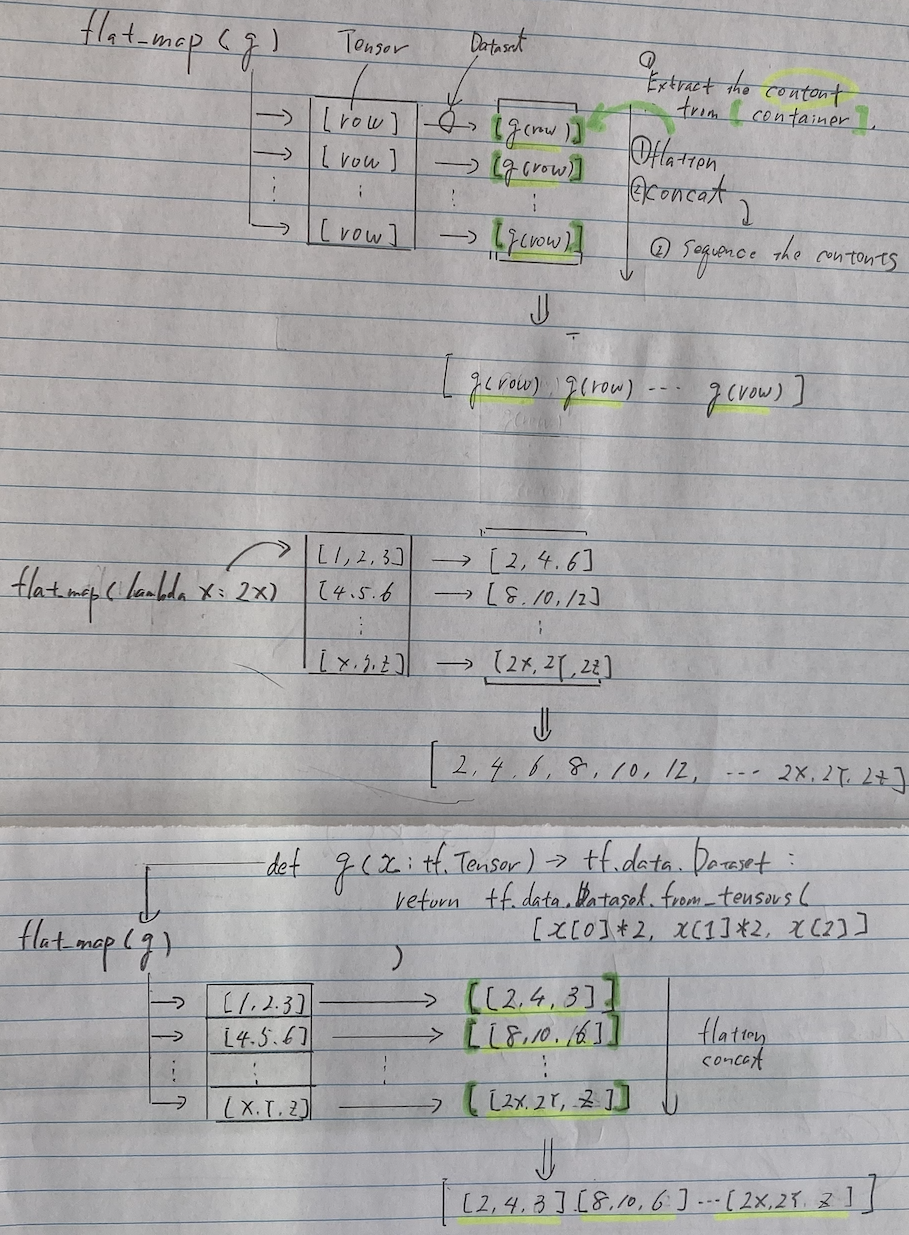 flat_map (g)
Tensor
Dataset
① Extract the content
from [container].
[row] → [g(row)]
[row] → [g(row)]
[row] → [g(row)]
① flatten
② concat
② sequence the contents
[ g(row) g(row) --- g(row) ]
flat_map (lambda x: 2x)
[1,2,3] → [2,4.6]
[4.5.6 → [8.10,12]
[x.y.z] → [2x,2Y,2z]
[ 2, 4, 6, 8, 10, 12, --- 2x.2Y.2z]
def g(x: tf.Tensor) → tf.data.Dataset :
return tf.data.Dataset.from_tensors(
[x[0]*2, x[1]*2, x[2]]
)
flat_map (g)
[1,2.3] → [[2,4,3]]
[4.5.6] → [[8,10.6]]
[x.Y.z] → [[2x.2Y, z]]
flatten
concat
[ [2,4,3] [8,10,6] --- [2x,2Y. z] ]